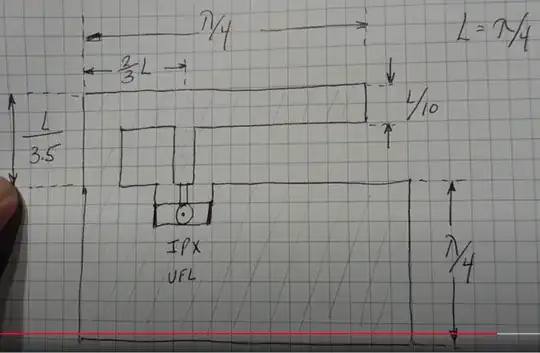 λ/4
L = λ/4
2/3 L
L/10
L/3.5
IPX
UFL
λ/4